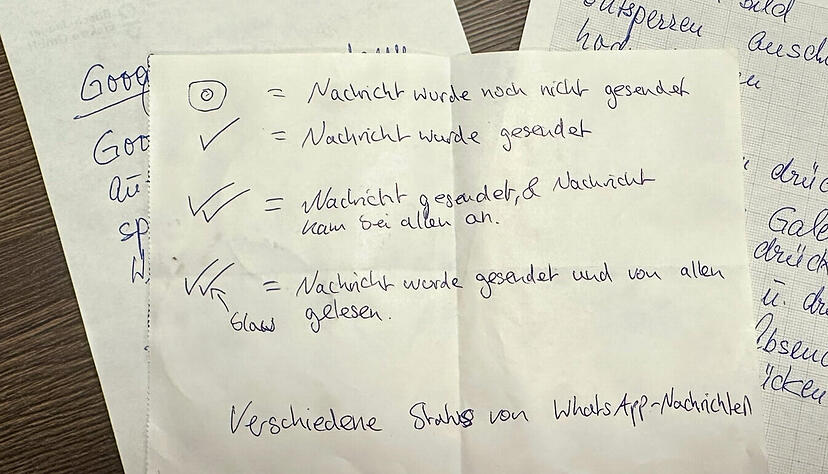 Goog
Goo
au-
sp
= Nachricht wurde noch nicht gesendet
✓ = Nachricht wurde gesendet
✓✓ = Nachricht gesendet, & Nachricht
kam bei allen an.
✓✓ = Nachricht wurde gesendet und von allen
blau gelesen.
Verschiedene Status von WhatsApp-Nachrichten
ntsperren
drüc
Gale
drück
u. dr
Absend
icken